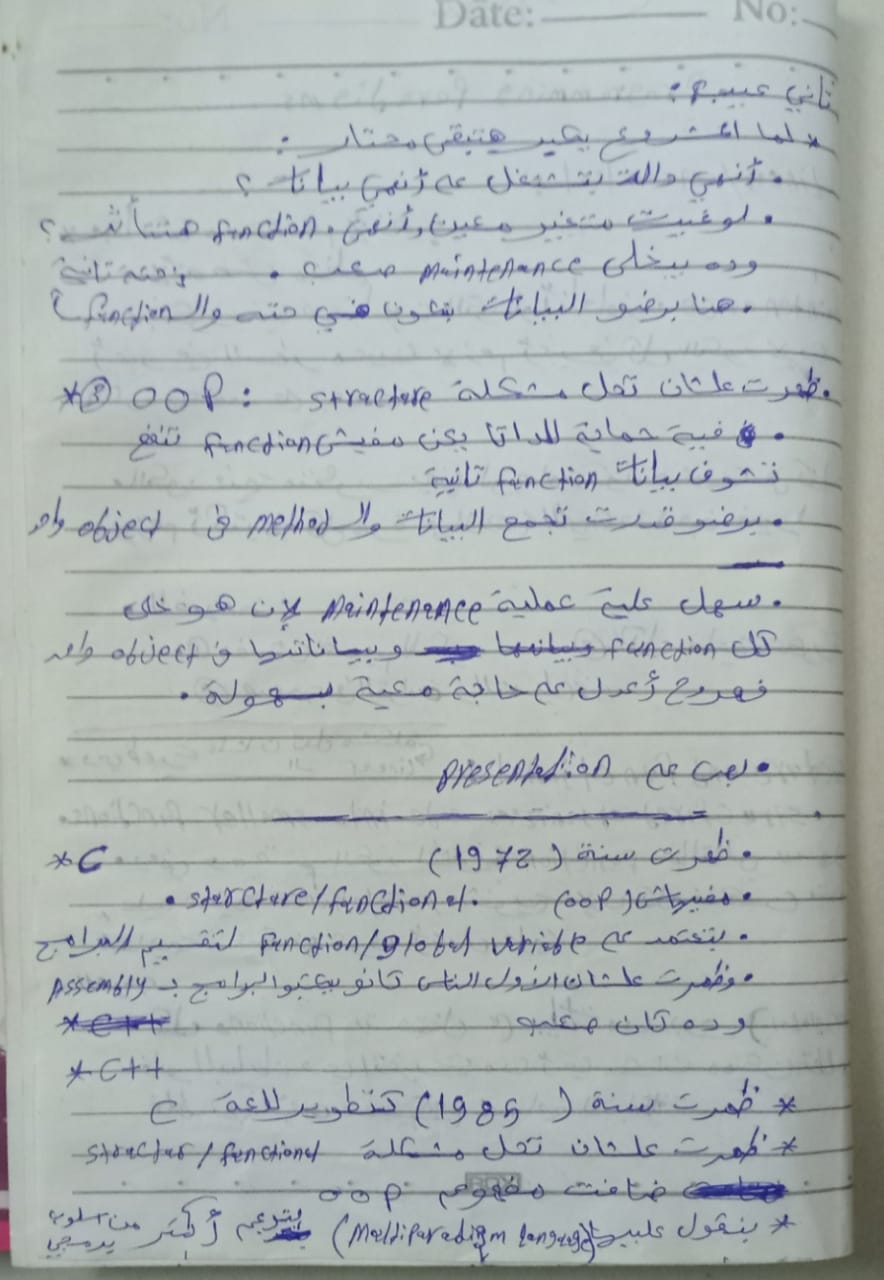 Date: No:
تاني عيب :
* لما المشروع يكبر هتبقى محتار :
. أنهي دالة بتشتغل على أنهي بيانات ؟
. لو غيرت متغير معين، أنهي function هتتأثر ؟
وده بيخلى maintenance صعب .
. هنا برضو البيانات بتكون في حته والـ function في حته تانية
*③ OOP : ظهرت علشان تحل مشكلة structure
. فية حماية للداتا يعني مفيش function تنفع
تشوف بيانات function تانية
. برضو قدرت تجمع البيانات والـ method في object واحد
. سهل علية عملية Maintenance لان هو خلى
كل function وبياناتها في object واحد
فهروح أعدل على حاجة معينة بسهولة .
. على presentation
* C . ظهرت سنة (1972)
. مفيهاش (oop) structure/functional .
. بتعتمد على function/global variable لتقسيم البرامج
. وظهرت علشان الأول الناس كانو بيكتبو البرامج بـ Assembly
وده كان صعب
* C++
* C++
* ظهرت سنة (1985) كتطوير للغة C
* ظهرت علشان تحل مشكلة structur / functional
ضافت مفهوم oop
* بنقول عليها (Multiparadigm language) بتدعم أكتر من اسلوب برمجي